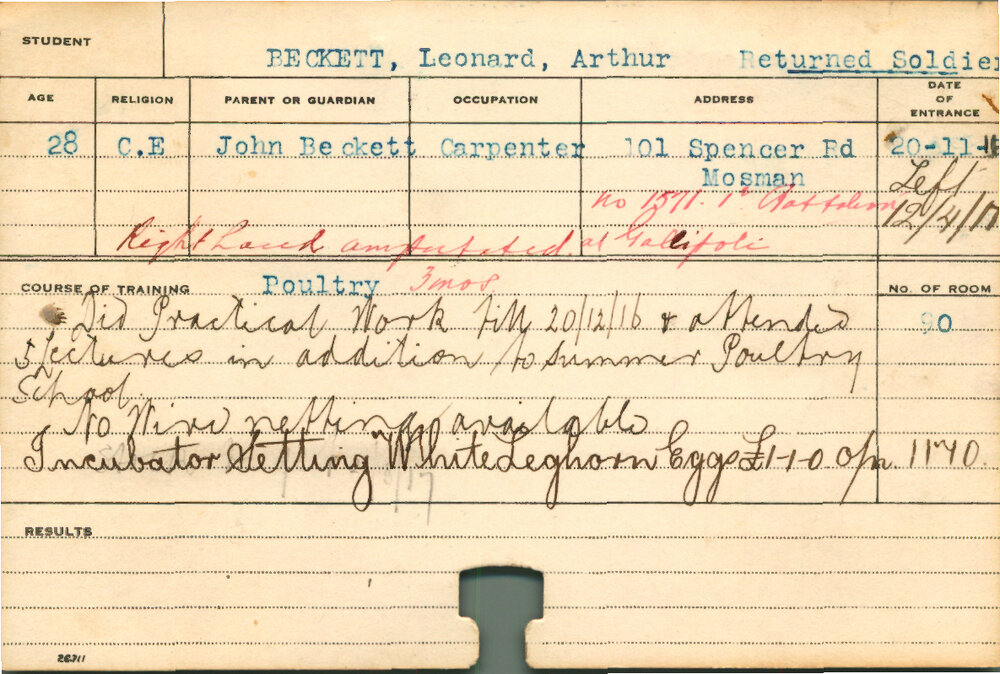 STUDENT
BECKETT, Leonard, Arthur Returned Soldier
AGE RELIGION PARENT OR GUARDIAN OCCUPATION ADDRESS DATE OF ENTRANCE
28 C.E John Beckett Carpenter 101 Spencer Rd 20-11-16
Mosman Left
No 1571. 1st Battalion 12/4/17
Right hand amputated at Gallipoli
COURSE OF TRAINING Poultry 3mos. No. OF ROOM
Did Practical Work till 20/12/16 & attended 90
5 Lectures in addition to summer Poultry
School.
No Wire netting available
Incubator Setting White Leghorn Eggs £1-1-0 o/n. 1170.
RESULTS
26311